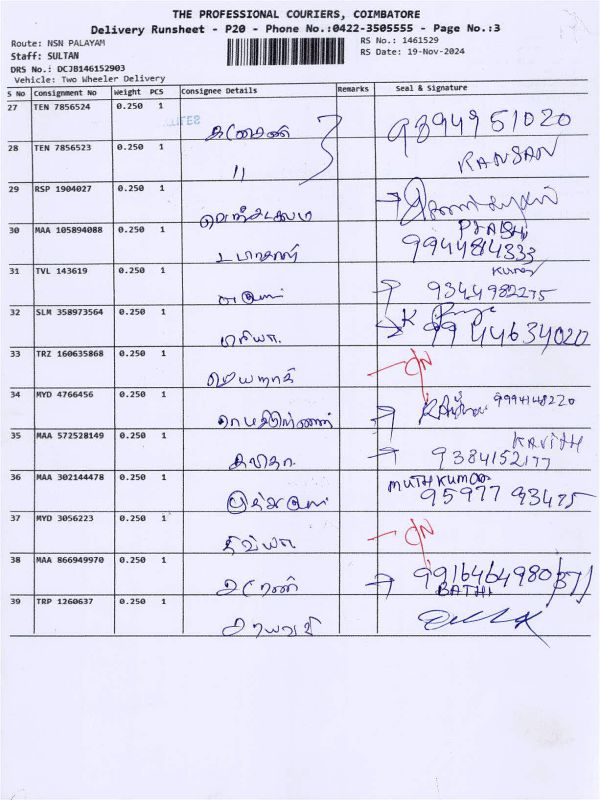 THE PROFESSIONAL COURIERS, COIMBATORE
Delivery Runsheet - P20 - Phone No.:0422-3505555 - Page No.:3
Route: NSN PALAYAM
RS No.: 1461529
Staff: SULTAN
RS Date: 19-Nov-2024
DRS No.: DCJB146152903
Vehicle: Two Wheeler Delivery
S No Consignment No Weight PCS Consignee Details Remarks Seal & Signature
27 TEN 7856524 0.250 1 9894951020
28 TEN 7856523 0.250 1 " KANSAN
29 RSP 1904027 0.250 1
30 MAA 105894088 0.250 1 9944814333
31 TVL 143619 0.250 1 Kumar 9344982275
32 SLM 358973564 0.250 1 பிரியா 9944634020
33 TRZ 160635868 0.250 1 ON
34 MYD 4766456 0.250 1 9994148220
35 MAA 572528149 0.250 1 கவிதா KAVITH 9384152177
36 MAA 302144478 0.250 1 முத்துகுமார் MUTHKUMAR 95977 93475
37 MYD 3056223 0.250 1 திவ்யா ON
38 MAA 866949970 0.250 1 9916464980 BATHI
39 TRP 1260637 0.250 1